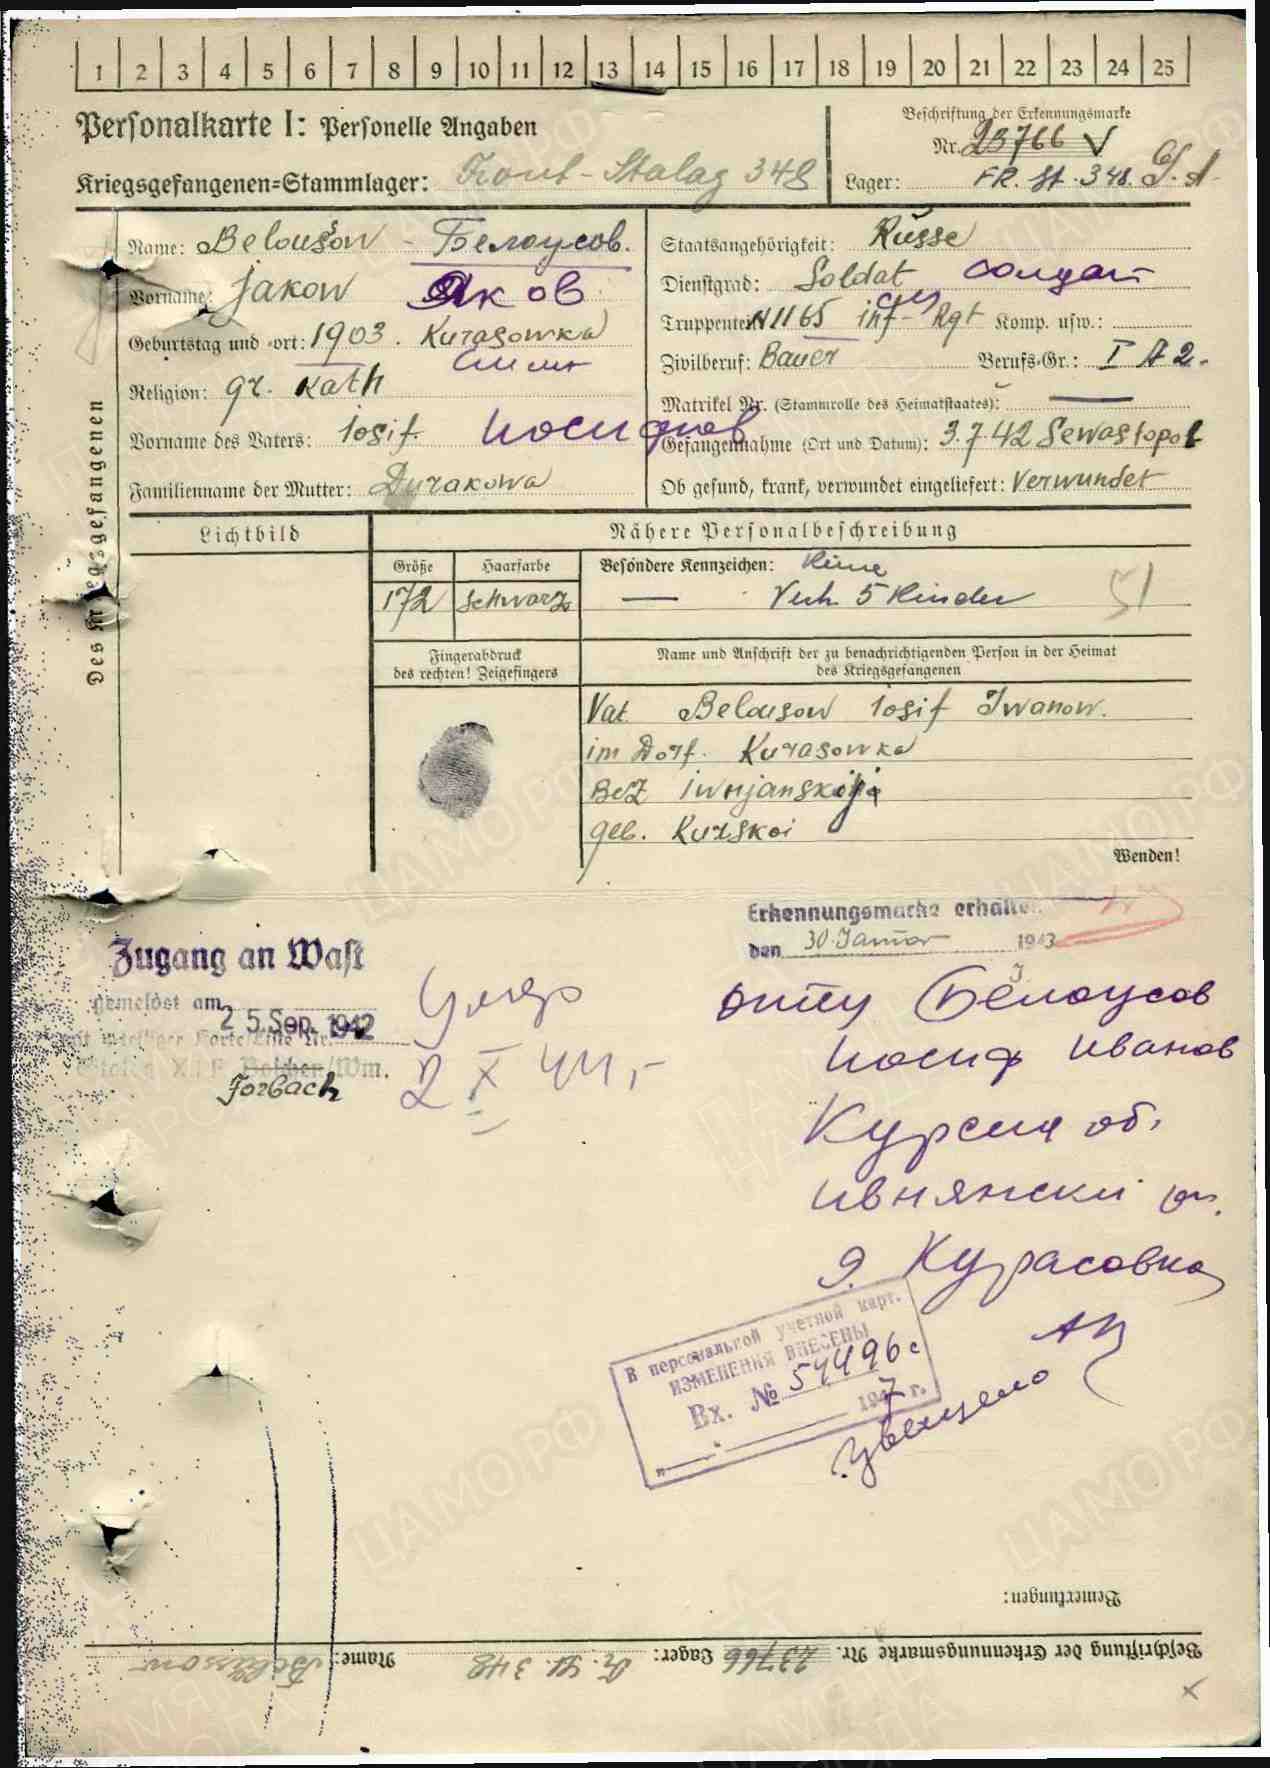 1 2 3 4 5 6 7 8 9 10 11 12 13 14 15 16 17 18 19 20 21 22 23 24 25
Personalkarte I: Personelle Angaben
Beschriftung der Erkennungsmarke
Nr. 23766
Kriegsgefangenen=Stammlager: Front-Stalag 348
Lager: FR. St. 348.
Des Kriegsgefangenen
Name: Belousow - Белоусов.
Vorname: Jakow Яков
Geburtstag und -ort: 1903. Kurasowka
Religion: gr. kath
Vorname des Vaters: Iosif. Иосифов
Familienname der Mutter: Durakowa
Staatsangehörigkeit: Russe
Dienstgrad: Soldat солдат
Truppenteil: N 1165 inf-Rgt Komp. usw.:
Zivilberuf: Bauer Berufs-Gr.: I A 2.
Matrikel Nr. (Stammrolle des Heimatstaates): —
Gefangennahme (Ort und Datum): 3.7.42 Sewastopol
Ob gesund, krank, verwundet eingeliefert: Verwundet
Lichtbild
Nähere Personalbeschreibung
Größe Haarfarbe Besondere Kennzeichen: Keine
172 schwarz — Verh. 5 Kinder
51
Fingerabdruck
des rechten! Zeigefingers
Name und Anschrift der zu benachrichtigenden Person in der Heimat
des Kriegsgefangenen
Vat. Belousow Iosif Iwanow.
im Dorf. Kurasowka
Bez Iwnjanskija
geb. Kurskoi
Wenden!
Erkennungsmarke erhalten
den 30. Januar 1943
Zugang an Wast
gemeldet am 25. Sep. 1942
Forbach
Умер
2 X 44,-
отцу Белоусов
Иосиф Иванов
Курская об.
Ивнянски
д. Курасовка
В персональной учетной карт.
ИЗМЕНЕНИЯ ВНЕСЕНЫ
Вх. № 54496с
1947 г.
Извещено
Bemerkungen:
Beschriftung der Erkennungsmarke Nr. 23766 Lager: Fr. St. 348 Name:
ЦАМО.РФ
ПАМЯТЬ НАРОДА